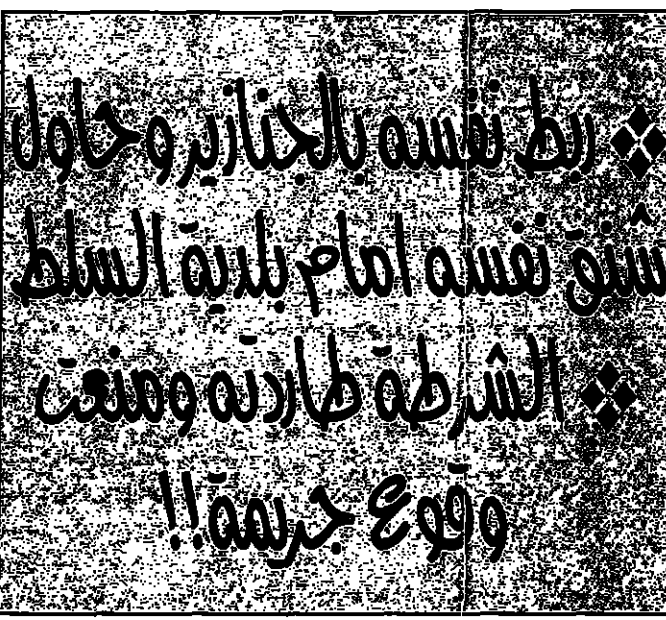 ❖ ربط نفسه بالجنازير وحاول
شنق نفسه امام بلدية السلط
❖ الشرطة طاردته ومنعت
وقوع جريمة!!